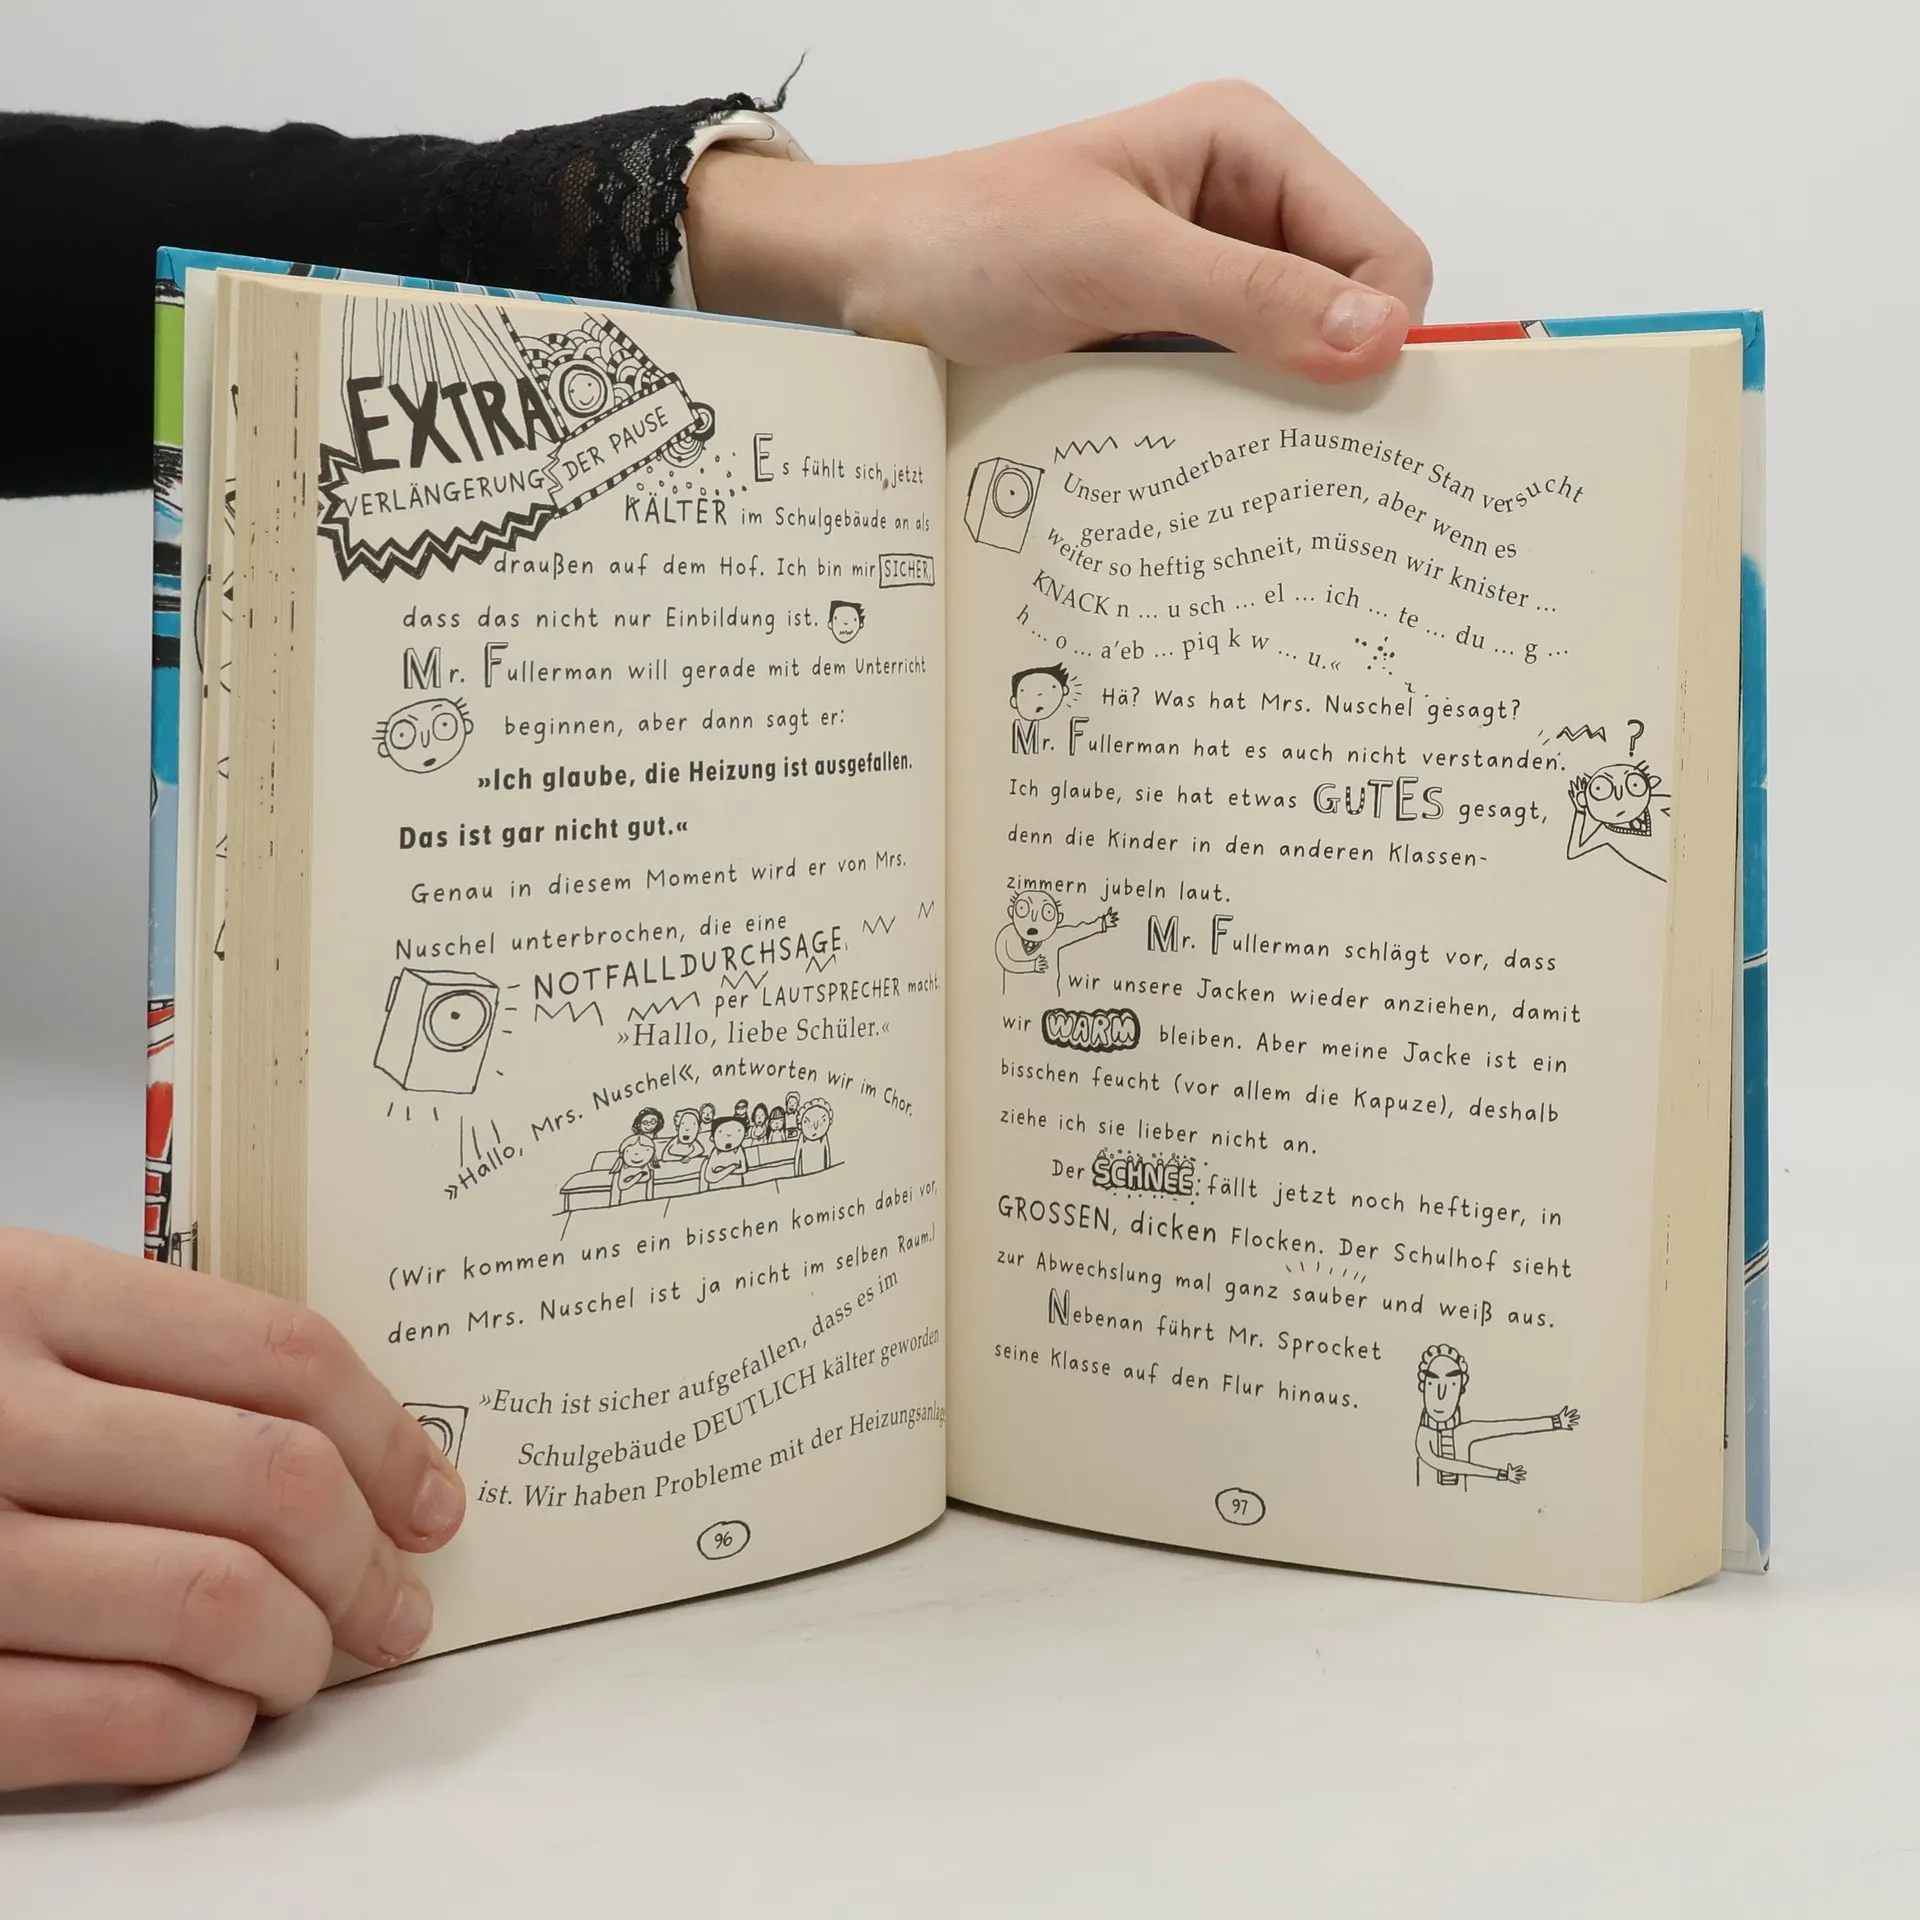 EXTRA
VERLÄNGERUNG DER PAUSE
Es fühlt sich jetzt
KÄLTER im Schulgebäude an als
draußen auf dem Hof. Ich bin mir SICHER,
dass das nicht nur Einbildung ist.
Mr. Fullerman will gerade mit dem Unterricht
beginnen, aber dann sagt er:
»Ich glaube, die Heizung ist ausgefallen.
Das ist gar nicht gut.«
Genau in diesem Moment wird er von Mrs.
Nuschel unterbrochen, die eine
NOTFALLDURCHSAGE
per LAUTSPRECHER macht.
»Hallo, liebe Schüler.«
»Hallo, Mrs. Nuschel«, antworten wir im Chor.
(Wir kommen uns ein bisschen komisch dabei vor,
denn Mrs. Nuschel ist ja nicht im selben Raum.)
»Euch ist sicher aufgefallen, dass es im
Schulgebäude DEUTLICH kälter geworden
ist. Wir haben Probleme mit der Heizungsanlage
96
Unser wunderbarer Hausmeister Stan versucht
gerade, sie zu reparieren, aber wenn es
weiter so heftig schneit, müssen wir knister ...
KNACK n ... u sch ... el ... ich ... te ... du ... g ...
h ... o ... a'eb ... piq k w ... u.«
Hä? Was hat Mrs. Nuschel gesagt?
?
Mr. Fullerman hat es auch nicht verstanden.
Ich glaube, sie hat etwas GUTES gesagt,
denn die Kinder in den anderen Klassen-
zimmern jubeln laut.
Mr. Fullerman schlägt vor, dass
wir unsere Jacken wieder anziehen, damit
wir WARM bleiben. Aber meine Jacke ist ein
bisschen feucht (vor allem die Kapuze), deshalb
ziehe ich sie lieber nicht an.
Der SCHNEE fällt jetzt noch heftiger, in
GROSSEN, dicken Flocken. Der Schulhof sieht
zur Abwechslung mal ganz sauber und weiß aus.
Nebenan führt Mr. Sprocket
seine Klasse auf den Flur hinaus.
97